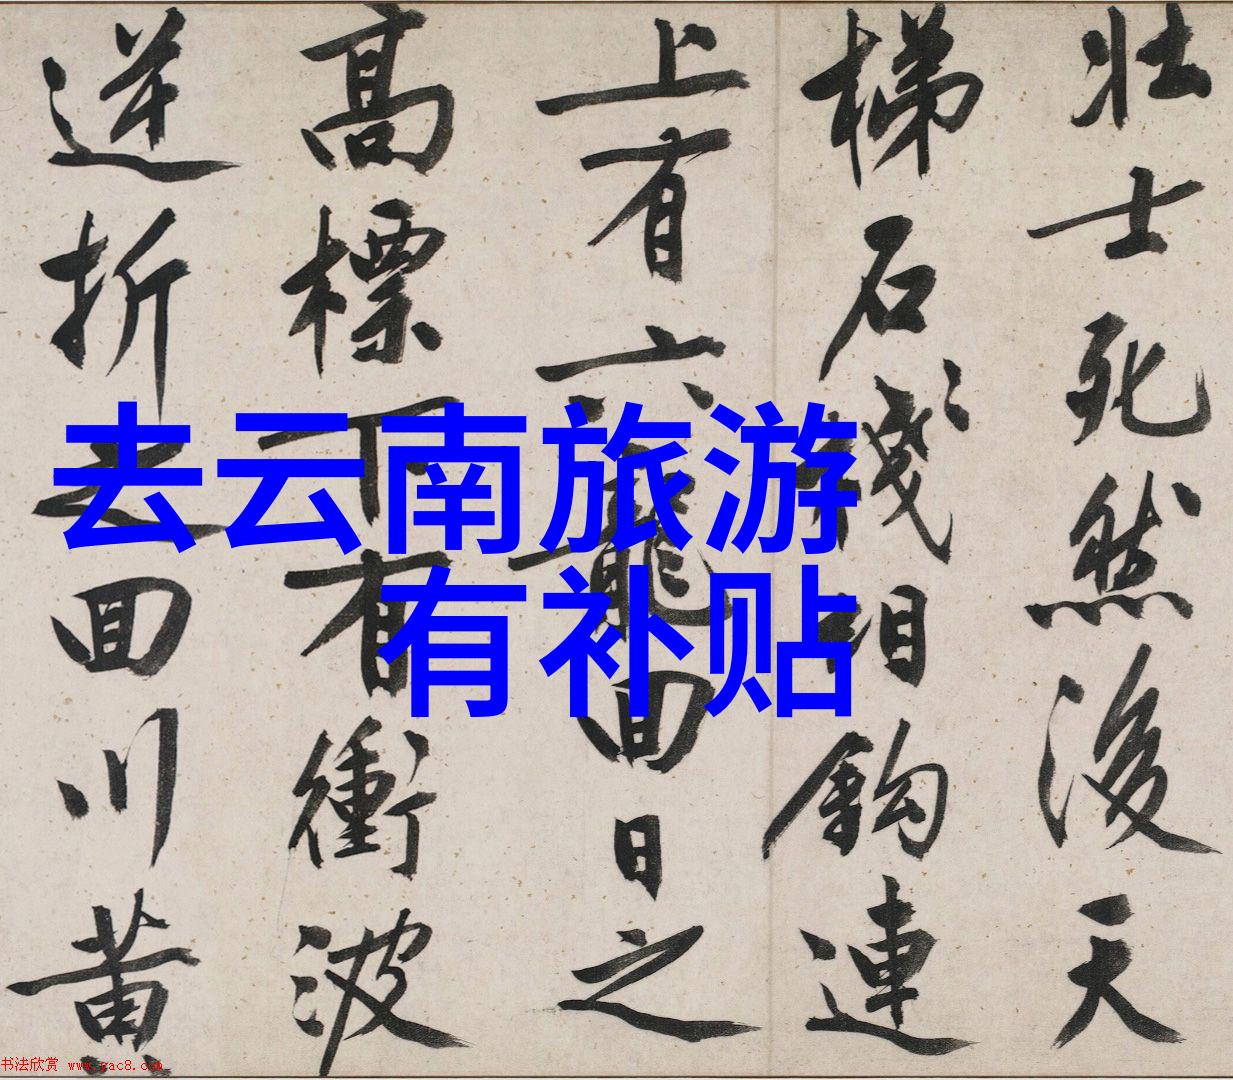 壮士死然後天
梯石棧相鈎連
上有六龍回日之
高標下有衝波
逆折之回川黄
去云南旅游
有补贴
书法欣赏 www.yac8.com